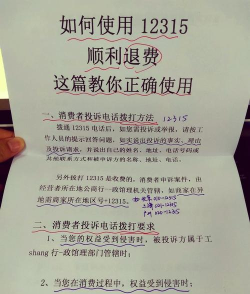 如何使用 12315
顺利退费
这篇教你正确使用
一、消费者投诉电话拨打方法 12315
拨通 12315 电话后，如您需投诉或举报，请按工
作人员的提示回答问题，如实说出投诉的事实、理由
及投诉需求，并说出自己的姓名、地址、电话号码或
其他联系方式和被申诉方的名称、地址、电话。
另外拨打 12315 是收费的。消费者申诉案件，由
经营者所在地公商行一政馆理机关管辖，如商家在异
地需商家所在地区号+12315。
二、消费者投诉电话拨打要求
1、当您的权益受到侵害时，被投诉方属于工
shang 行-政馆理部门管辖时；
2、当您在消费过程中，权益受到侵害时；